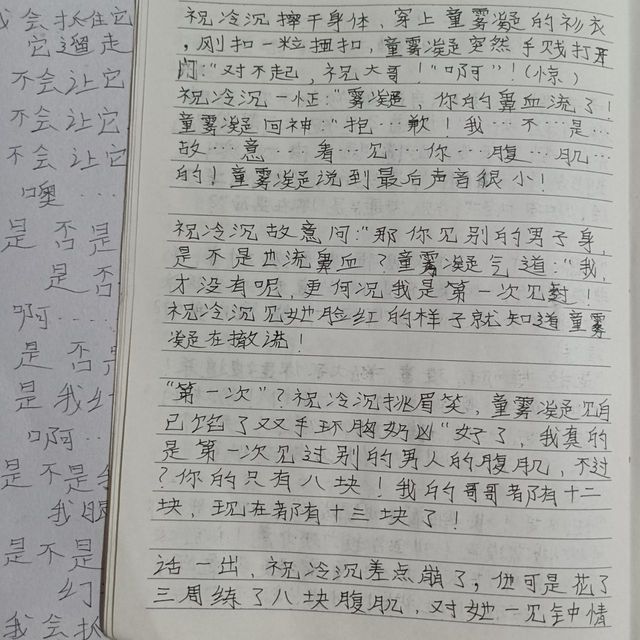 会抓住它
它遛走
不会让它
不会让它
不会让它
噢……
是否是
是否
啊……
是否是
是我幺
啊……
是不是
我
是不是
幻
我会抓
祝冷沉擦干身体，穿上童雾凝的衫衣
，刚扣一粒扭扣，童雾凝突然手贱打开
门：“对不起，祝大哥！”啊”！（惊）
祝冷沉一怔：“雾凝，你的鼻血流了！
童雾凝回神：“抱…歉！我…不…是…
故…意…看…见…你…腹…肌…
的！童雾凝说到最后声音很小！
祝冷沉故意问：“那你见别的男子身，
是不是也流鼻血？童雾凝气道：“我，
才没有呢，更何况我是第一次见过！
祝冷沉见她脸红的样子就知道童雾
凝在撒谎！
“第一次”？祝冷沉挑眉笑，童雾凝见自
己馅了双手环胸奶凶“好了，我真的
是第一次见过别的男人的腹肌，不过
？你的只有八块！我的哥哥都有十二
块，现在都有十三块了！
话一出，祝冷沉差点崩了，他可是花了
三周练了八块腹肌，对她一见钟情